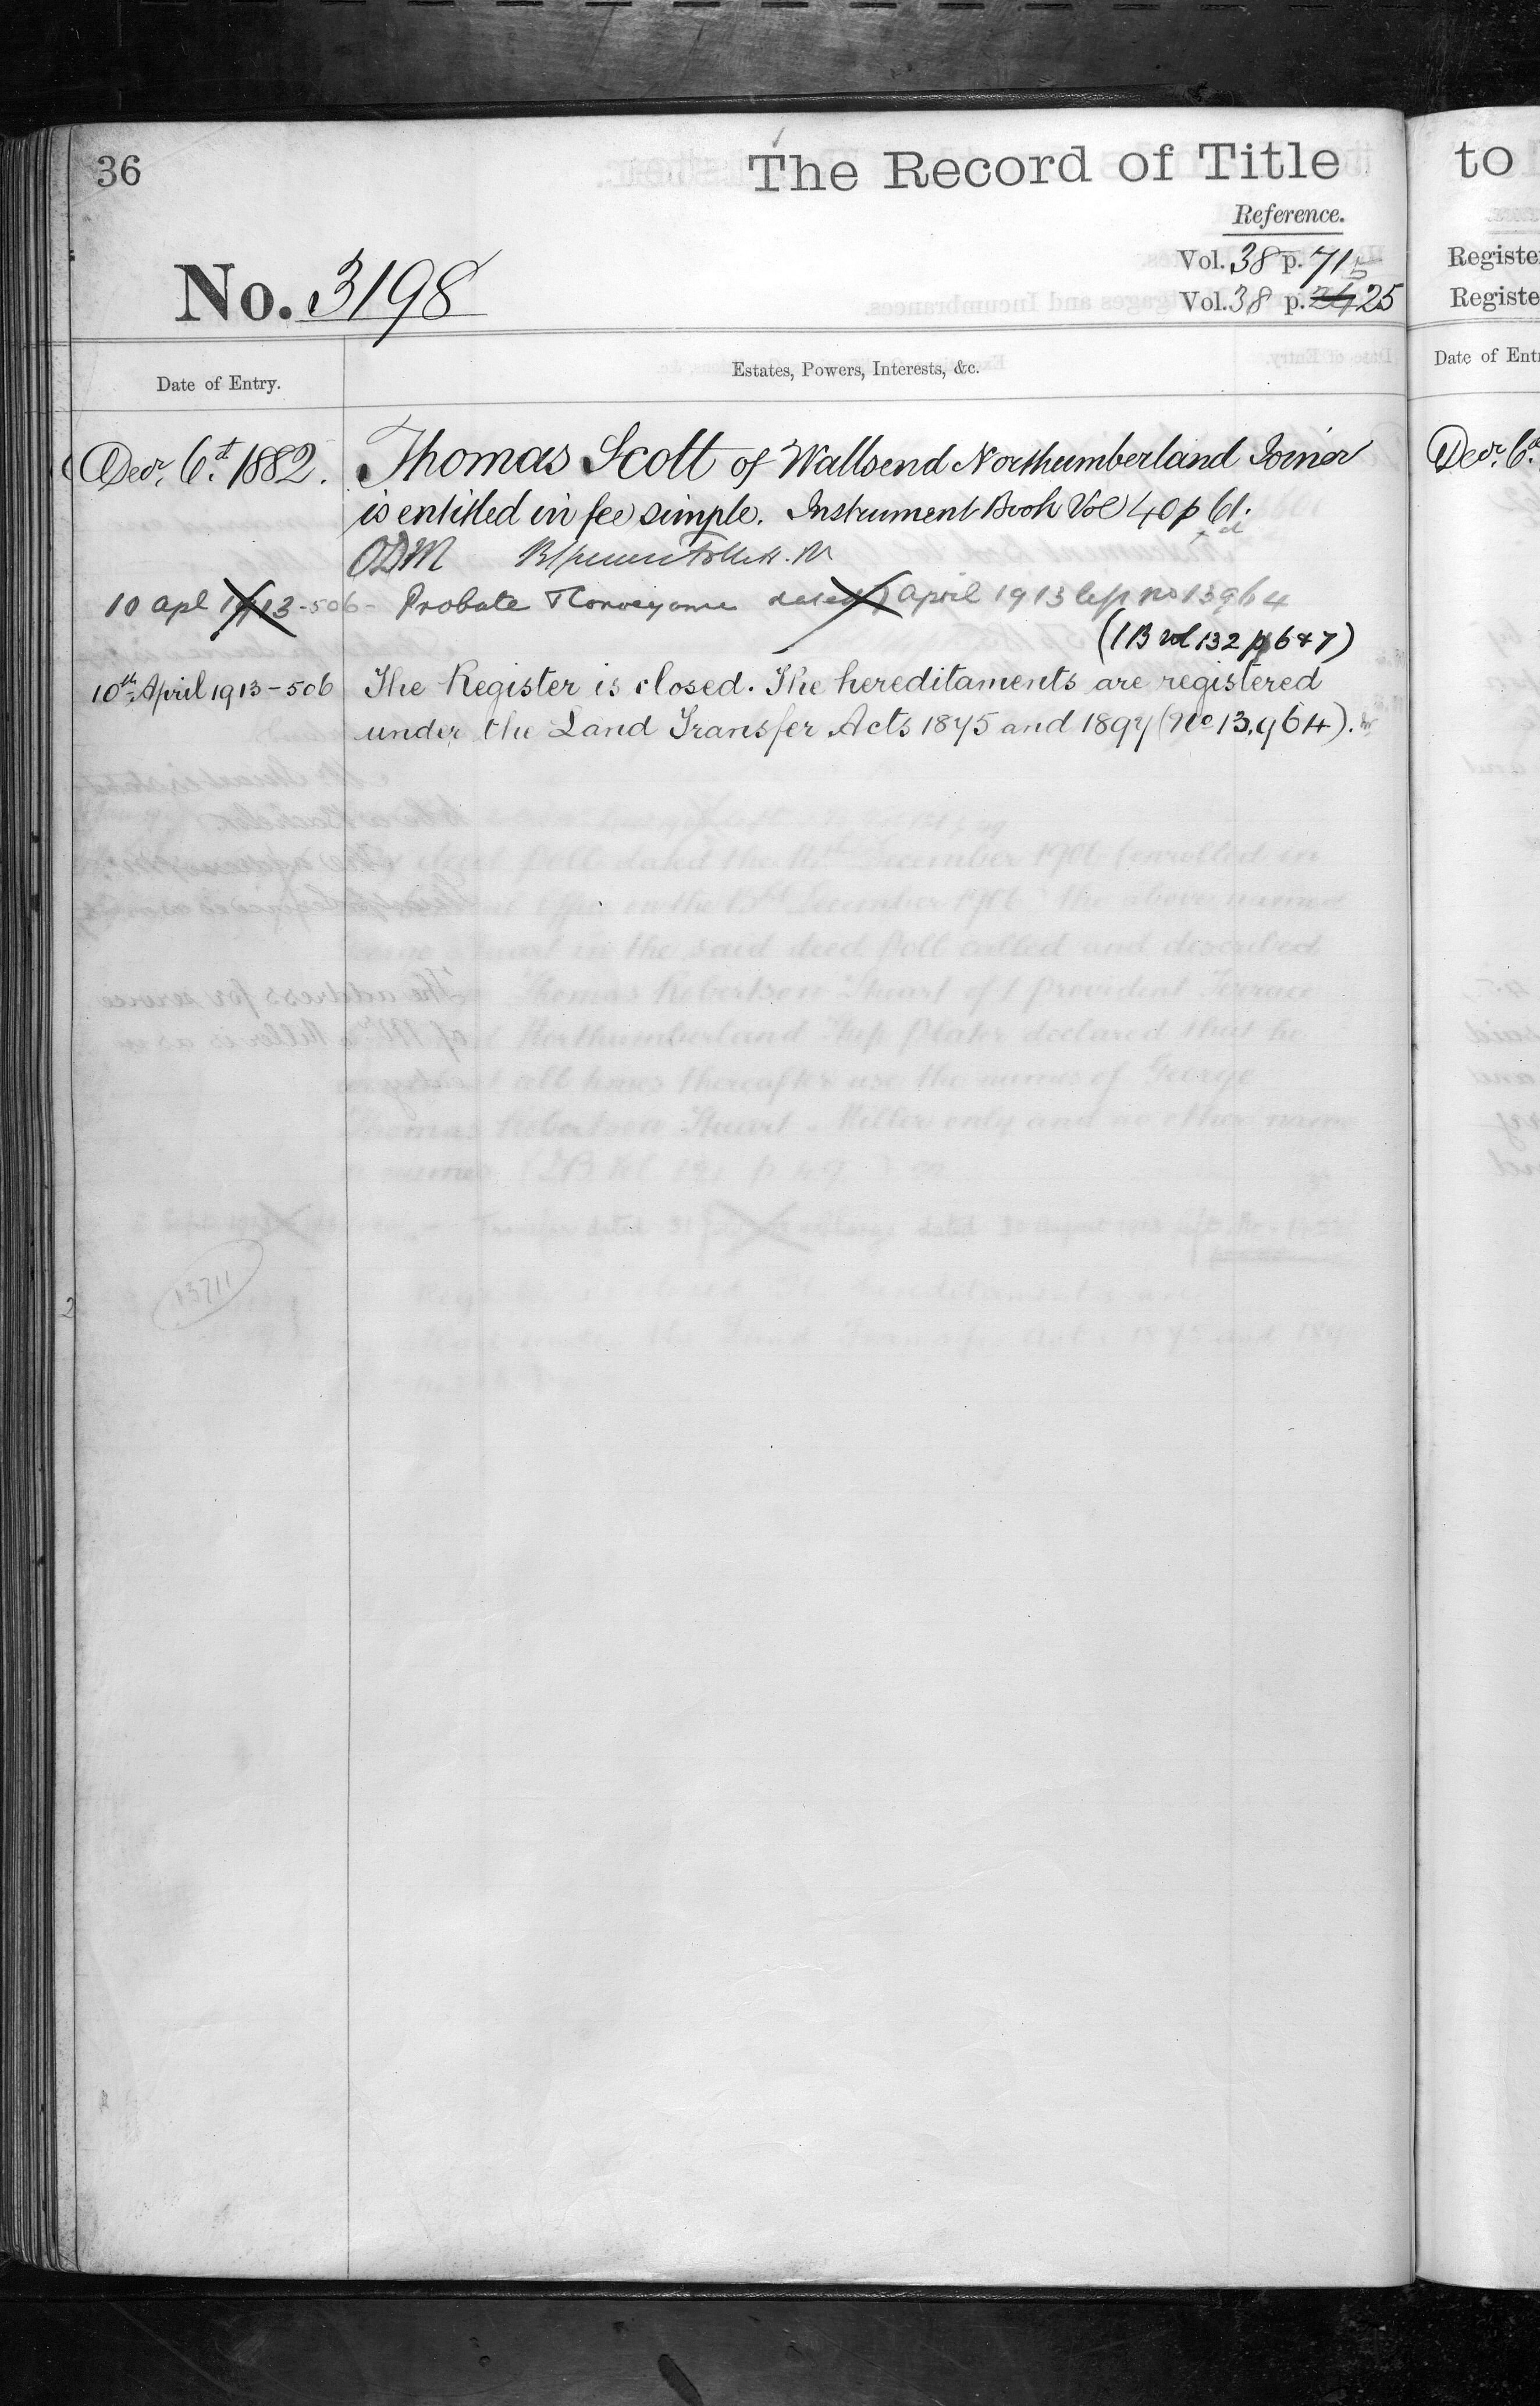 36
The Record of Title
Reference.
Vol. 38 p. 71
Vol. 38 p. 25
No. 3198
Date of Entry.
Estates, Powers, Interests, &c.
Decr. 6th. 1882.
Thomas Scott of Wallsend Northumberland Joiner
is entitled in fee simple. Instrument Book Vol 40 p 61.
ODM
10 apl 1913-506-
Probate & Conveyance dated April 1913 no 13964
(IB vol 132 p 6 & 7)
10th April 1913-506
The Register is closed. The hereditaments are registered
under the Land Transfer Acts 1875 and 1897 (No 13,964).
13711
to
Registe
Registe
Date of Ent
Decr. 6